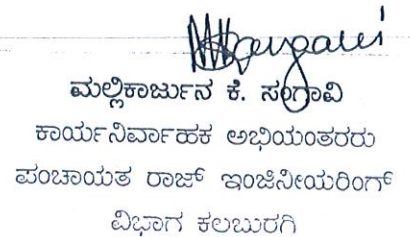 ಮಲ್ಲಿಕಾರ್ಜುನ ಕೆ. ಸಂಗಾವಿ
ಕಾರ್ಯನಿರ್ವಾಹಕ ಅಭಿಯಂತರರು
ಪಂಚಾಯತ ರಾಜ್ ಇಂಜಿನೀಯರಿಂಗ್
ವಿಭಾಗ ಕಲಬುರಗಿ